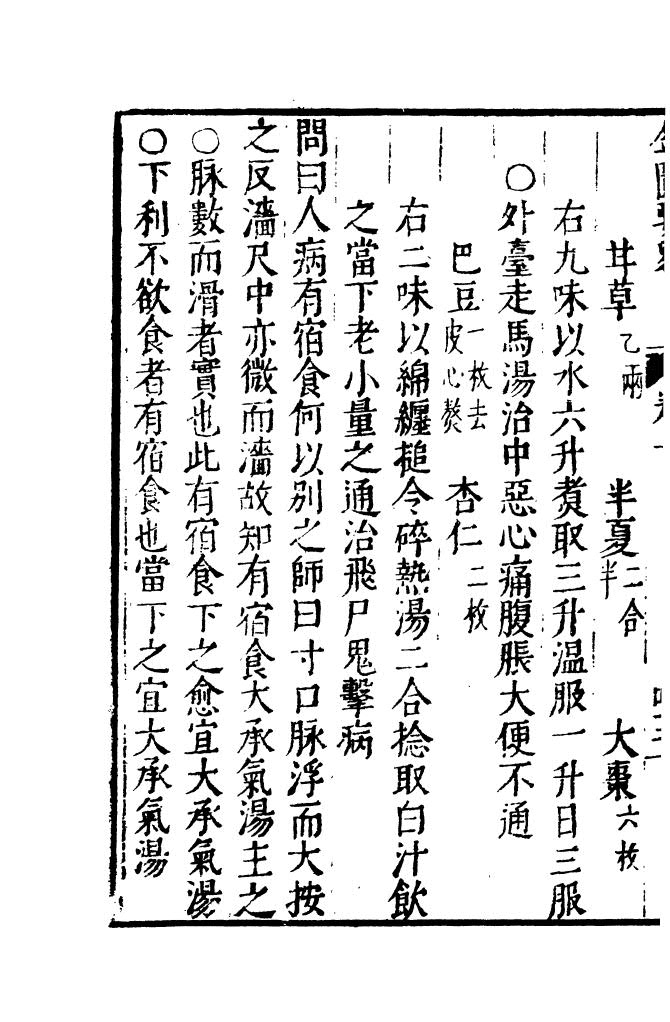 甘草乙兩　半夏二合半　大棗六枚
右九味以水六升煑取三升温服一升日三服
○外臺走馬湯治中惡心痛腹脹大便不通
巴豆一枚去皮心熬　杏仁二枚
右二味以綿纏搥令碎熱湯二合捻取白汁飲
之當下老小量之通治飛尸鬼擊病
問曰人病有宿食何以別之師曰寸口脉浮而大按
之反濇尺中亦微而濇故知有宿食大承氣湯主之
○脉數而滑者實也此有宿食下之愈宜大承氣湯
○下利不欲食者有宿食也當下之宜大承氣湯